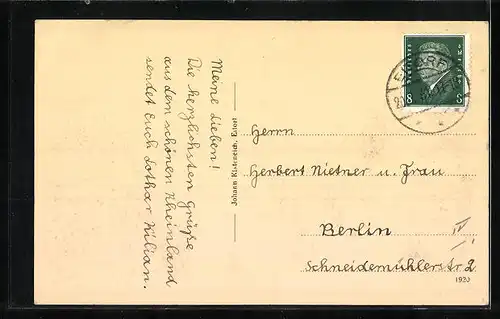 Meine Lieben!
Die herzlichsten Grüße
aus dem schönen Rheinland
sendet Euch Lothar Kilian.
Johann Elsterreich, Erfort
8 8
Herrn
Herbert Nietner u. Frau
Berlin
Schneidemühlerstr. 2
1920